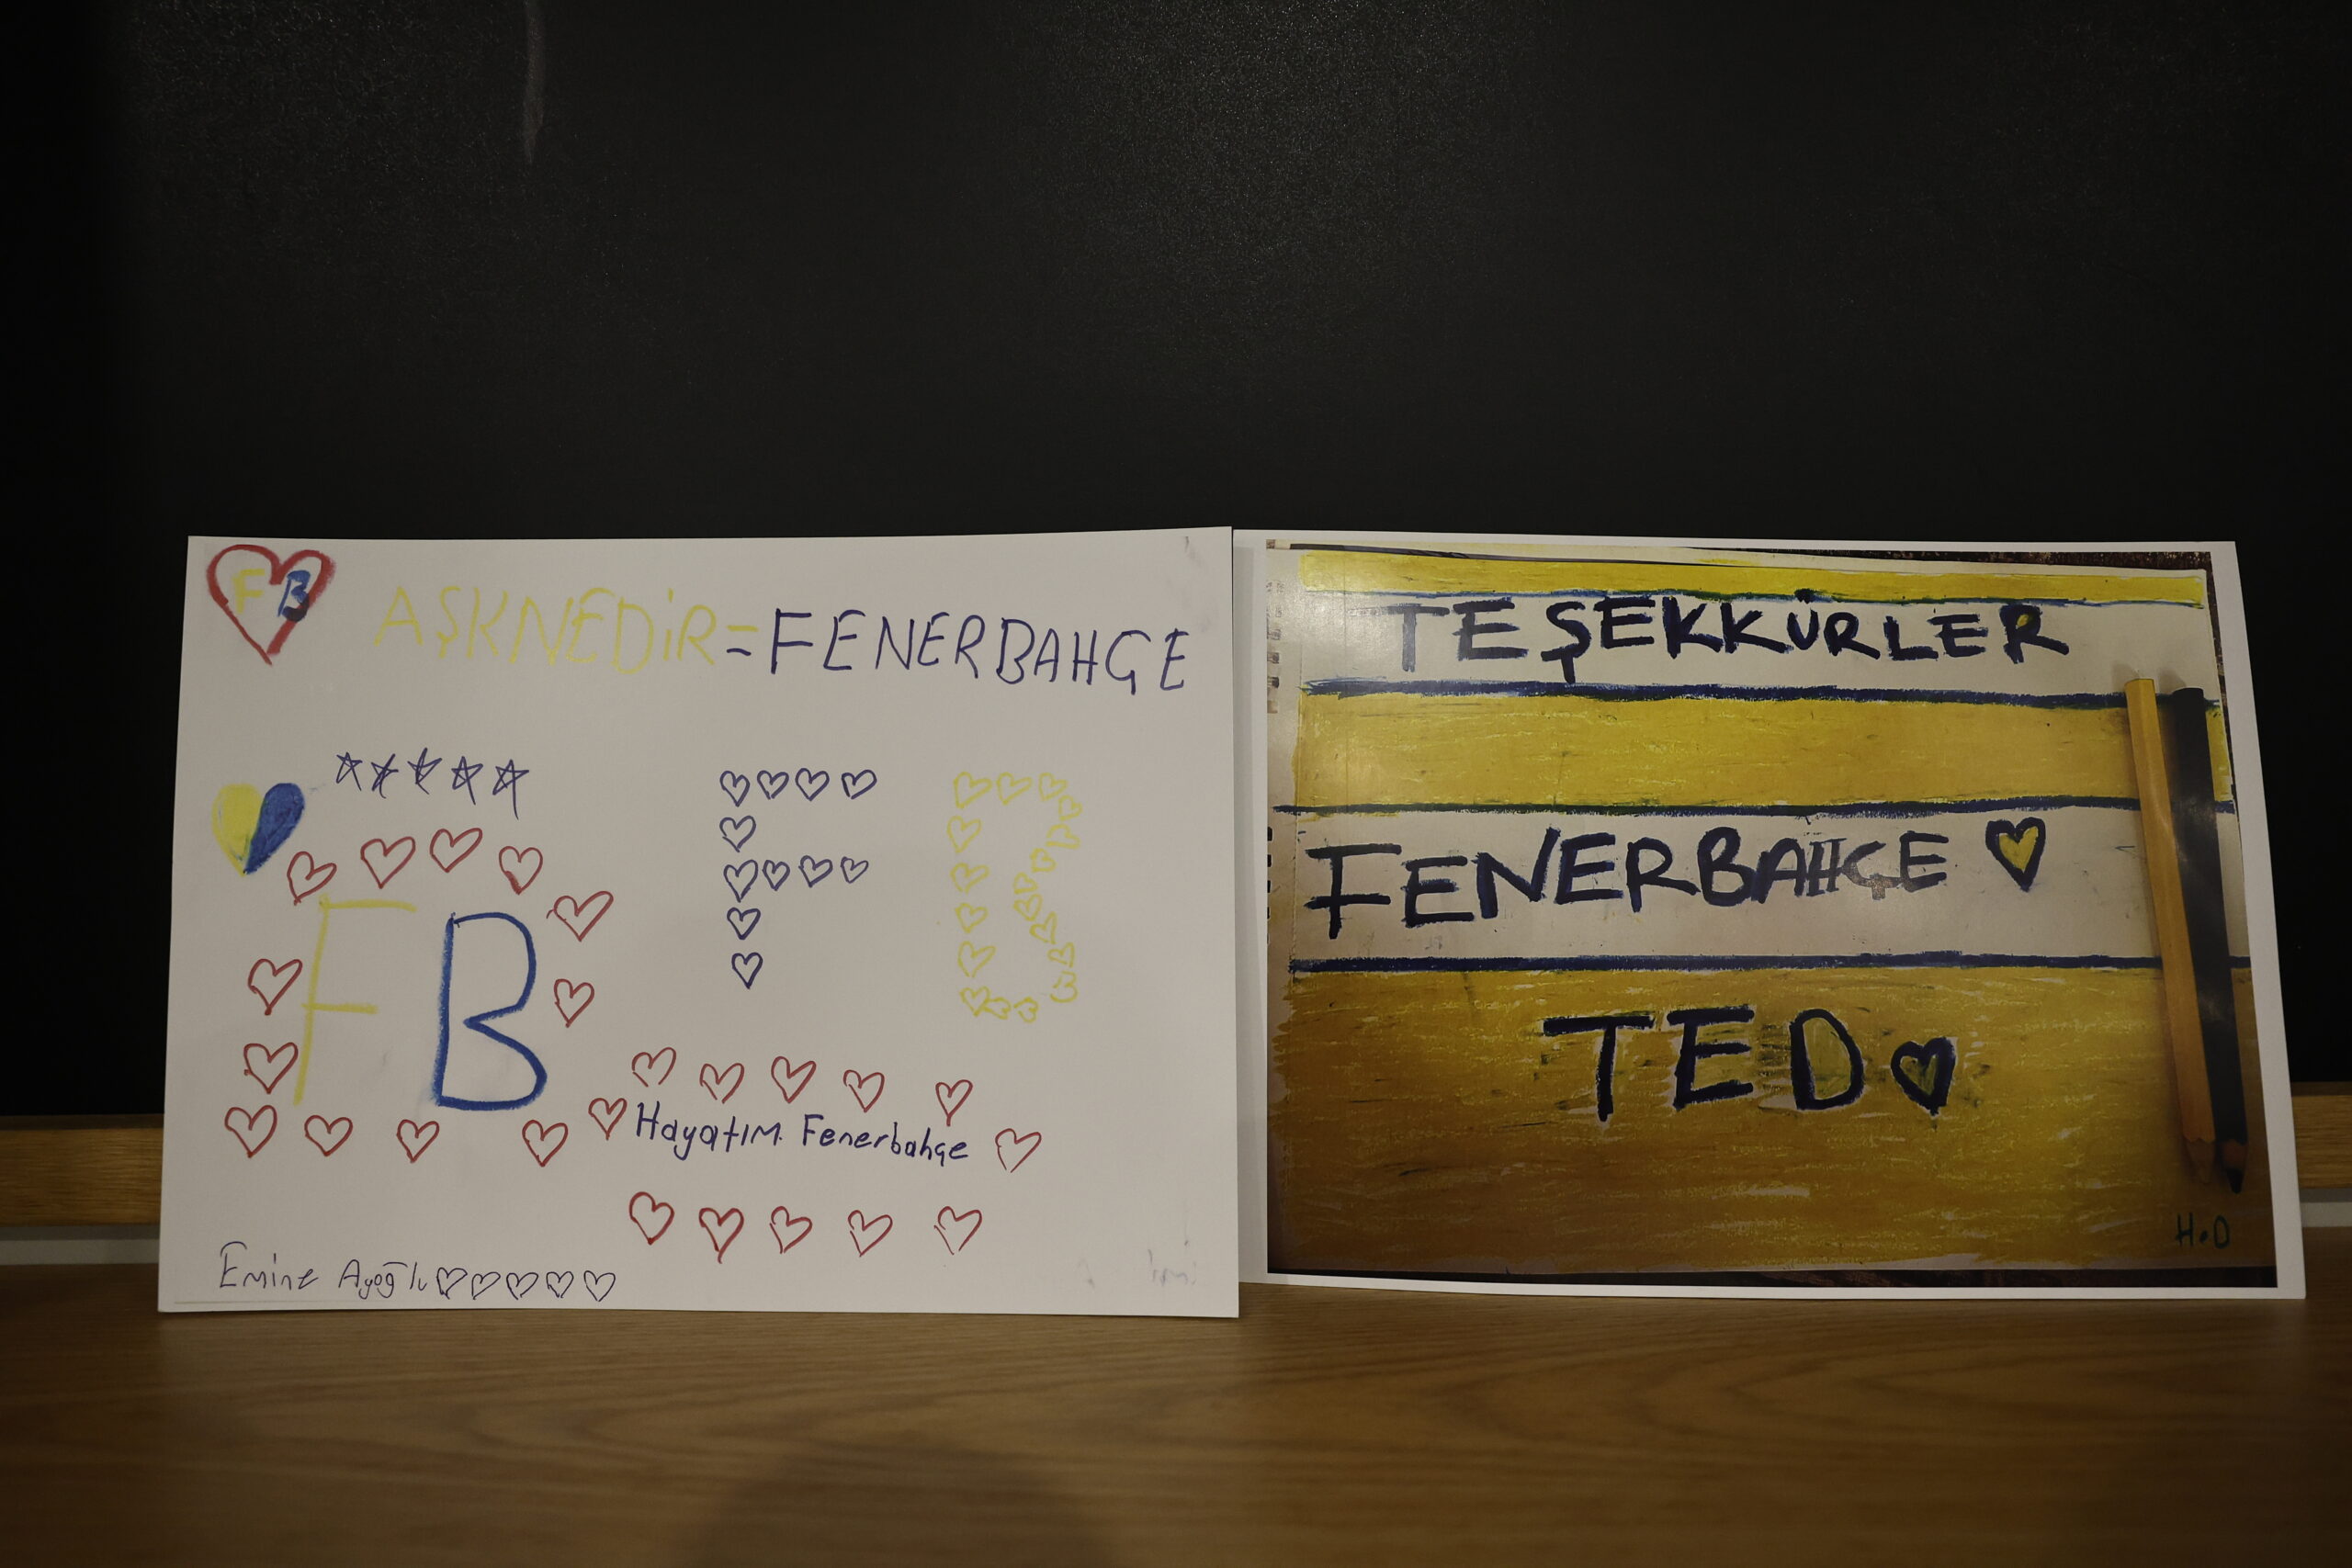 FB
AŞKNEDİR=FENERBAHÇE
FB
Hayatım Fenerbahçe
Emine Ayoğlu
TEŞEKKÜRLER
FENERBAHÇE
TED
H.O